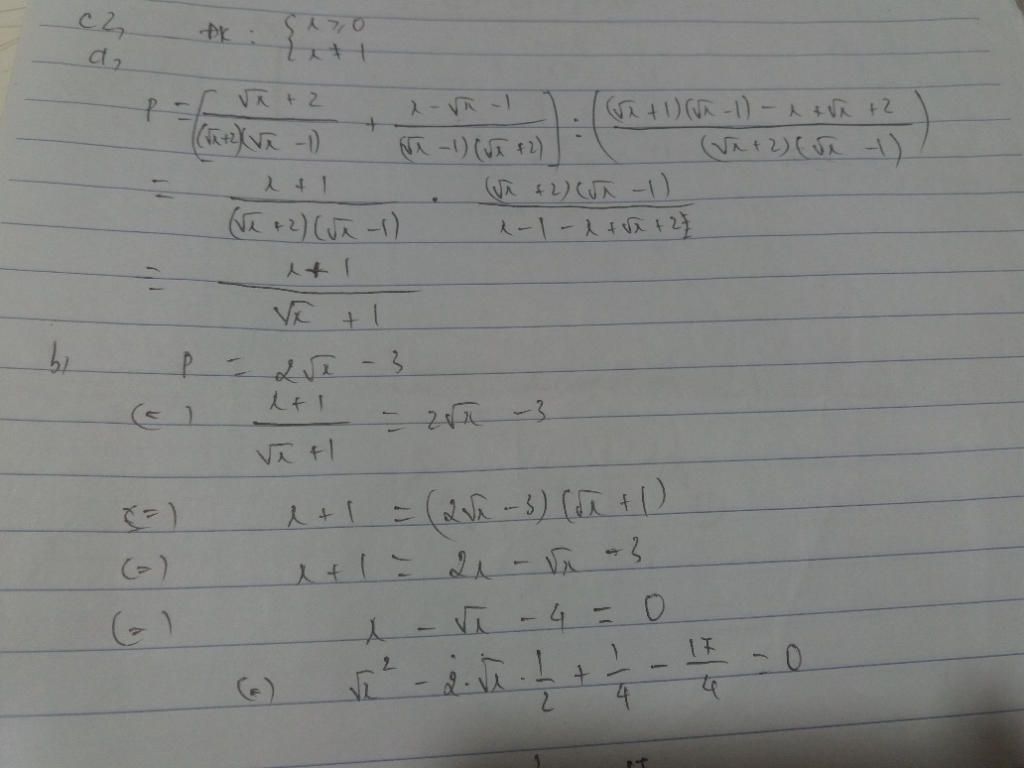 c2, ĐK : { x ≥ 0
a, { x ≠ 1
P = [ (√x + 2)/((√x+2)(√x - 1)) + (x - √x - 1)/((√x - 1)(√x + 2)) ] : ( ((√x + 1)(√x - 1) - x + √x + 2)/((√x + 2)(√x - 1)) )
= (x + 1)/((√x + 2)(√x - 1)) . ((√x + 2)(√x - 1))/(x - 1 - x + √x + 2)
= (x + 1)/(√x + 1)
b, P = 2√x - 3
(=) (x + 1)/(√x + 1) = 2√x - 3
(=) x + 1 = (2√x - 3)(√x + 1)
(=) x + 1 = 2x - √x - 3
(=) x - √x - 4 = 0
(=) √x² - 2.√x . 1/2 + 1/4 - 17/4 = 0